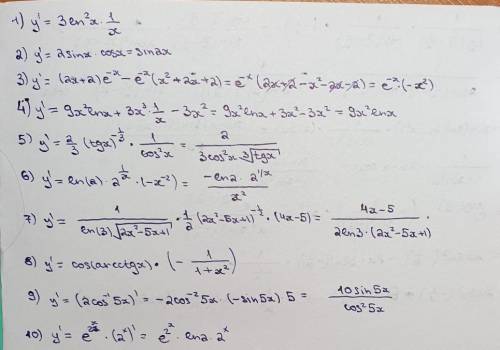 1) y' = 3 ln²x · 1/x
2) y' = 2sinx · cosx = sin2x
3) y' = (2x+2)e^(-x) - e^(-x)(x²+2x+2) = e^(-x)(2x+2-x²-2x-2) = e^(-x)·(-x²)
4) y' = 9x²lnx + 3x³·1/x - 3x² = 9x²lnx + 3x² - 3x² = 9x²lnx
5) y' = 2/3 (tgx)^(-1/3) · 1/cos²x = 2/(3cos²x · ∛tgx)
6) y' = ln(2) · 2^(1/x) · (-x^(-2)) = (-ln2 · 2^(1/x))/x²
7) y' = 1/(ln(3)√(2x²-5x+1)) · 1/2 (2x²-5x+1)^(-1/2) · (4x-5) = (4x-5)/(2ln3·(2x²-5x+1)) .
8) y' = cos(arcctgx) · (- 1/(1+x²))
9) y' = (2cos^(-1) 5x)' = -2cos^(-2) 5x · (-sin5x) 5 = 10sin5x/cos²5x
10) y' = e^(2^x) · (2^x)' = e^(2^x) · ln2 · 2^x